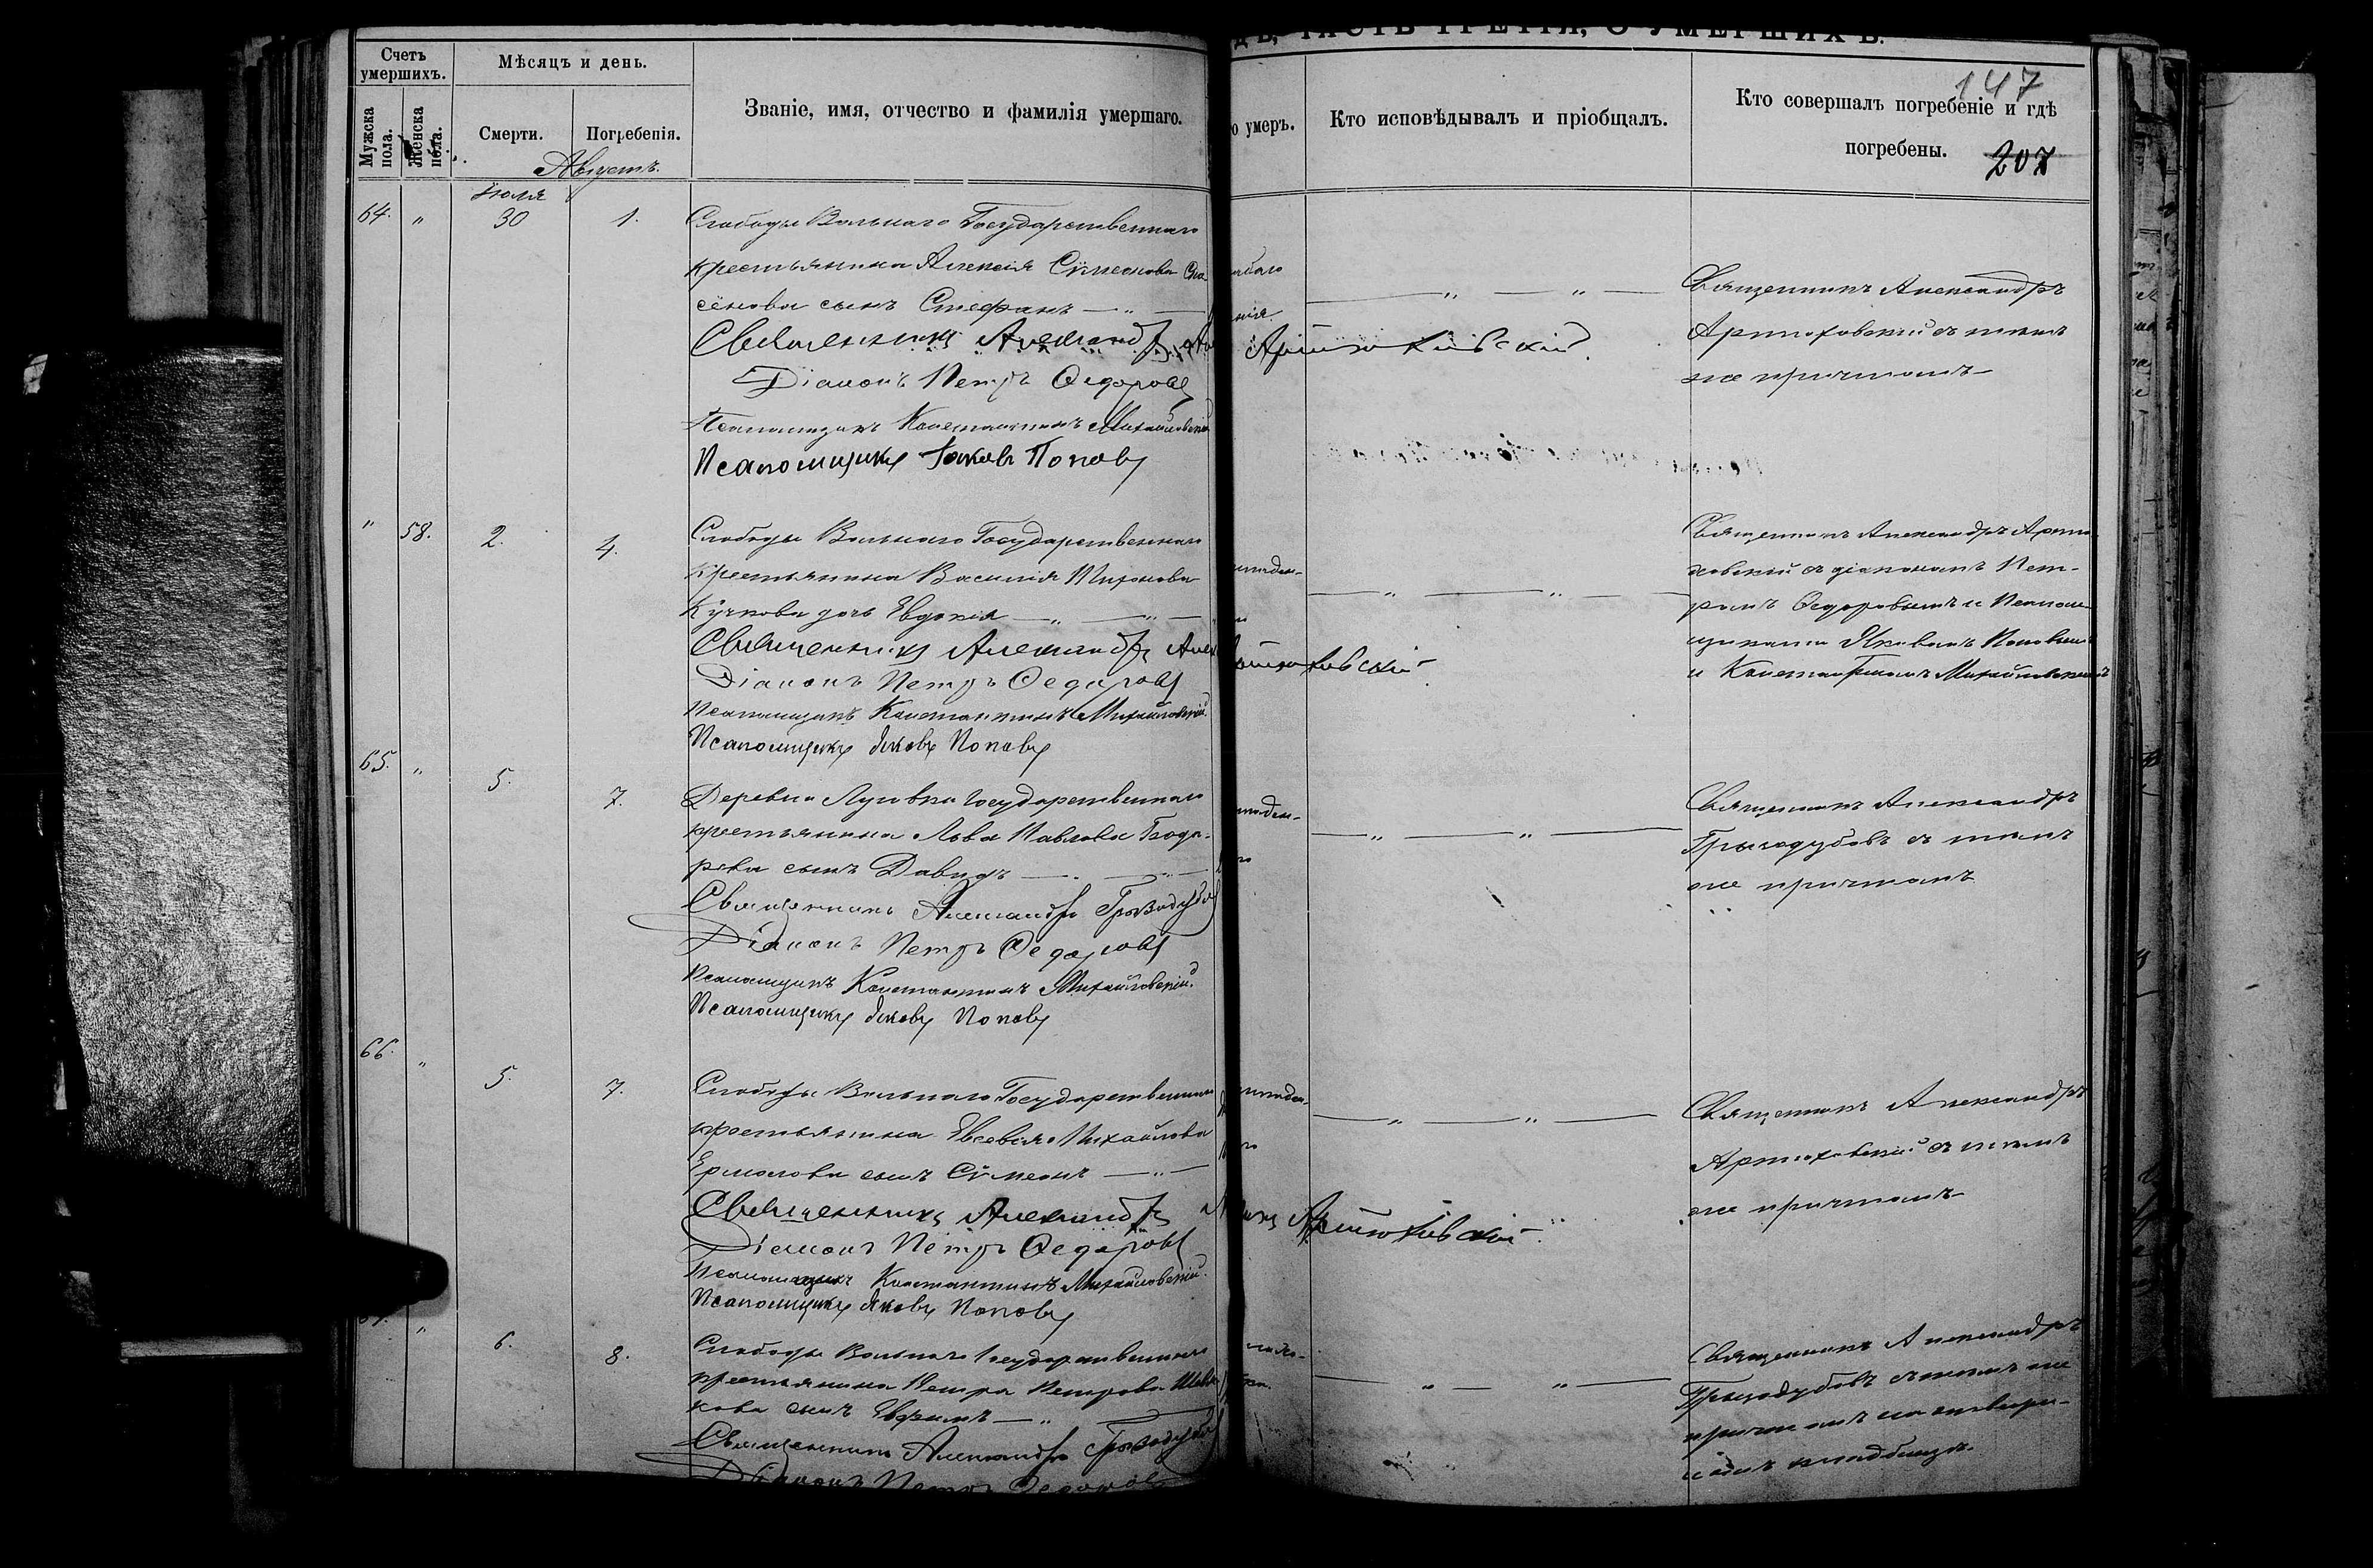 ЧАСТЬ ТРЕТІЯ, О УМЕРШИХЪ.
147
207
Счетъ умершихъ.
Мужска пола.
Женска пола.
Мѣсяцъ и день.
Смерти.
Погребенія.
Званіе, имя, отчество и фамилія умершаго.
умеръ.
Кто исповѣдывалъ и пріобщалъ.
Кто совершалъ погребеніе и гдѣ
погребены.
Августъ.
Іюля
64. " 30 1.
Слободы Вольнаго Государственнаго
крестьянина Алексія Сѵмеонова
сынъ Стефанъ
Священникъ Александръ Артюховскій
Діаконъ Петръ Ѳедоровъ
Псаломщикъ Константинъ Михайловскій
Псаломщикъ Іаковъ Поповъ
Священникъ Александръ
Артюховскій съ тѣмъ
же причтомъ
" 58. 2. 4.
Слободы Вольнаго Государственнаго
крестьянина Василія Тихонова
Кучкова дочь Евдокія
Священникъ Александръ Артюховскій
Діаконъ Петръ Ѳедоровъ
Псаломщикъ Константинъ Михайловскій.
Псаломщикъ Яковъ Поповъ
Священникъ Александръ Артю-
ховскій съ діакономъ Пет-
ромъ Ѳедоровымъ и Псалом-
щиками Яковомъ Поповымъ
и Константиномъ Михайловскимъ
65. " 5. 7.
Деревни Луговки Государственнаго
крестьянина Льва Павлова
сынъ Давидъ
Священникъ Александръ Гризодубовъ
Діаконъ Петръ Ѳедоровъ
Псаломщикъ Константинъ Михайловскій.
Псаломщикъ Яковъ Поповъ
Священникъ Александръ
Гризодубовъ съ тѣмъ
же причтомъ
66. " 5. 7.
Слободы Вольнаго Государственнаго
крестьянина Евсевія Михайлова
Ермолова сынъ Сѵмеонъ
Священникъ Александръ Артюховскій
Діаконъ Петръ Ѳедоровъ
Псаломщикъ Константинъ Михайловскій.
Псаломщикъ Яковъ Поповъ
Священникъ Александръ
Артюховскій съ тѣмъ
же причтомъ
" 6. 8.
Слободы Вольнаго Государственнаго
крестьянина Петра Петрова
сынъ Ефимъ
Священникъ Александръ Гризодубовъ
Діаконъ Петръ Ѳедоровъ
Священникъ Александръ
Гризодубовъ съ тѣмъ же
причтомъ на
кладбищѣ.